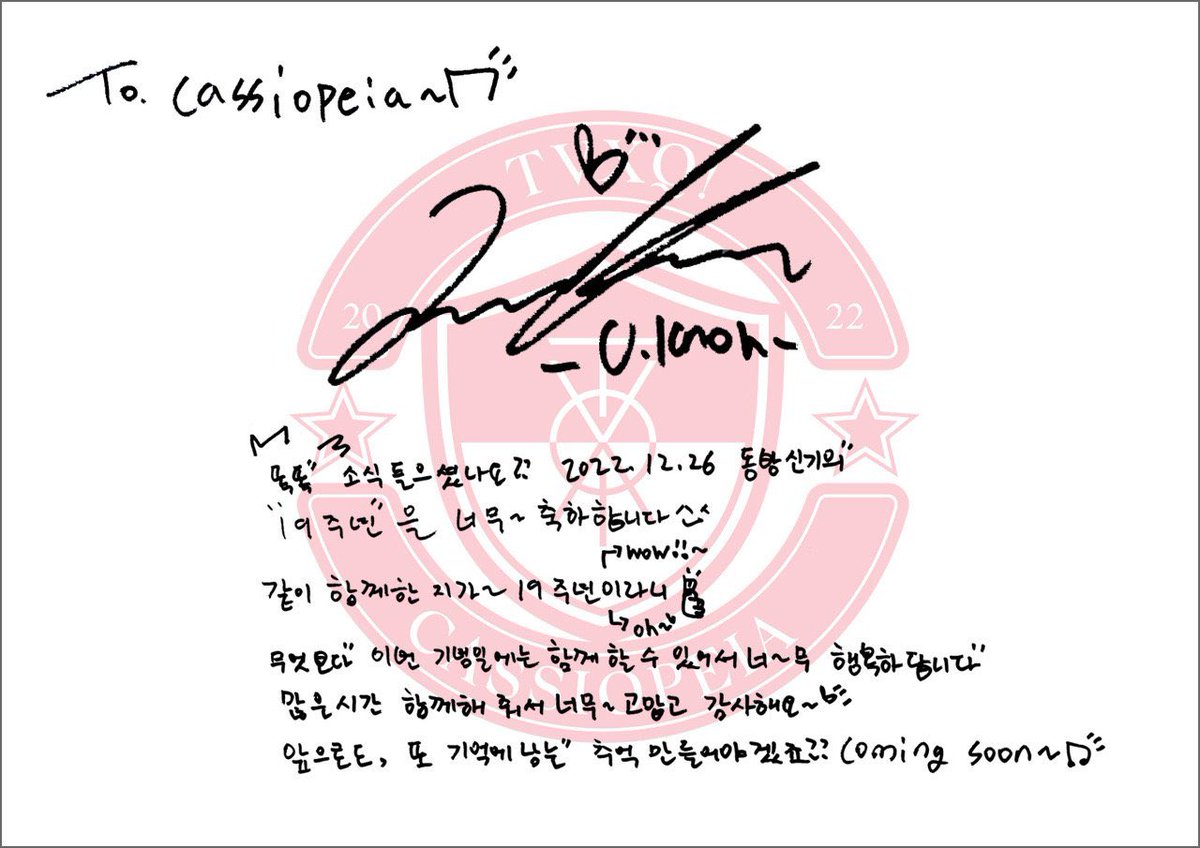 To. Cassiopeia~
TVXQ!
20 22
-U.Know-
똑똑" 소식 들으셨나요?? 2022.12.26 동방신기의"
"19주년"을 너무~ 축하합니다 ^^
wow!!~
같이 함께한 지가~ 19주년이라니
oh~
무엇보다" 이번 기념일에는 함께 할 수 있어서 너~무 행복하답니다"
CASSIOPEIA
많은시간 함께해 줘서 너무~ 고맙고 감사해요~
앞으로도, 또 기억에 남는" 추억 만들어야겠죠?? Coming soon~♫